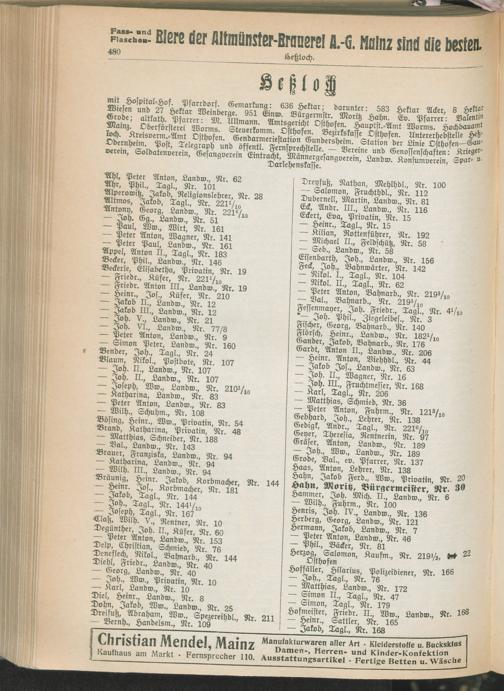 Fass- und Flaschen- Biere der Altmünster-Brauerei A.-G. Mainz sind die besten.
480
Heßloch.
Heßloch
mit Hospital-Hof. Pfarrdorf. Gemarkung: 636 Hektar; darunter: 583 Hektar Acker, 8 Hektar
Wiesen und 27 Hektar Weinberge. 951 Einw. Bürgermstr. Moritz Hahn. Ev. Pfarrer: Valentin
Grode; altkath. Pfarrer: M. Ullmann. Amtsgericht Osthofen. Haupst.-Amt Worms. Hochbauamt
Mainz. Oberförsterei Worms. Steuerkomm. Osthofen. Bezirkskasse Osthofen. Untererhebstelle Heß-
loch. Kreisverm.-Amt Osthofen. Gendarmeriestation Gundersheim. Station der Linie Osthofen—Gau-
Odernheim. Post, Telegraph und öffentl. Fernsprechstelle. — Vereine und Genossenschaften: Krieger-
verein, Soldatenverein, Gesangverein Eintracht, Männergesangverein, Landw. Konsumverein, Spar- u.
Darlehenskasse.
Ahl, Peter Anton, Landw., Nr. 62
Ahr, Phil., Tagl., Nr. 101
Alperowitz, Jakob, Religionslehrer, Nr. 28
Altmos, Jakob, Tagl., Nr. 221 1/10
Antony, Georg, Landw., Nr. 221 5/10
— Joh. Gg., Landw., Nr. 51
— Paul, Ww., Wirt, Nr. 161
— Peter Anton, Wagner, Nr. 141
— Peter Paul, Landw., Nr. 161
Appel, Anton II., Tagl., Nr. 183
Becker, Phil., Landw., Nr. 146
Beckerle, Elisabetha, Privatin, Nr. 19
— Friedr., Küfer, Nr. 221 1/10
— Friedr. Anton III., Landw., Nr. 19
— Heinr., Jos., Küfer, Nr. 210
— Jakob II., Landw., Nr. 12
— Jakob III., Landw., Nr. 12
— Joh. V., Landw., Nr. 21
— Joh. VI., Landw., Nr. 77/8
— Peter Anton, Landw., Nr. 9
— Simon Peter, Landw., Nr. 160
Bender, Joh., Tagl., Nr. 24
Blaum, Nikol., Postbote, Nr. 107
— Joh. II., Landw., Nr. 107
— Joh. II., Landw., Nr. 107
— Joseph, Ww., Landw., Nr. 210 1/10
— Katharina, Landw., Nr. 83
— Peter Anton, Landw., Nr. 83
— Wilh., Schuhm., Nr. 108
Bösing, Heinr., Ww., Privatin, Nr. 54
Brand, Katharina, Privatin, Nr. 48
— Matthias, Schneider, Nr. 188
— Val., Landw., Nr. 143
Brauer, Franziska, Landw., Nr. 94
— Katharina, Landw., Nr. 94
— Wilh. III., Landw., Nr. 94
Bräunig, Heinr. Jakob, Korbmacher, Nr. 144
— Heinr. Jos., Korbmacher, Nr. 181
— Jakob, Tagl., Nr. 144
— Joh., Tagl., Nr. 144 1/10
— Joseph, Tagl., Nr. 167
Claß, Wilh. V., Rentner, Nr. 10
Degünther, Joh. II., Küfer, Nr. 60
— Peter Anton, Landw., Nr. 153
Delp, Christian, Schmied, Nr. 76
Deneffelch, Nikol., Bahnarb., Nr. 144
Diehl, Friedr., Landw., Nr. 40
— Georg, Landw., Nr. 40
— Joh., Ww., Privatin, Nr. 10
— Karl, Landw., Nr. 10
Diel, Heinr., Landw., Nr. 8
Dohn, Jakob, Ww., Landw., Nr. 25
Dreifuß, Abraham, Ww., Spezereihbl., Nr. 211
— Bernh., Handelsm., Nr. 109
Dreyfuß, Nathan, Mehlhbl., Nr. 100
— Salomon, Fruchthbl., Nr. 112
Dubernell, Martin, Landw., Nr. 81
Eck, Andr. III., Landw., Nr. 116
Eckert, Eva, Privatin, Nr. 15
— Heinr., Tagl., Nr. 15
— Kilian, Rottenführer, Nr. 192
— Michael II., Feldschütz, Nr. 58
— Seb., Landw., Nr. 58
Eisenbarth, Joh., Landw., Nr. 156
Feck, Joh., Bahnwärter, Nr. 142
— Nikol. I., Tagl., Nr. 104
— Nikol. II., Tagl., Nr. 62
— Peter Anton, Bahnarb., Nr. 219 3/10
— Val., Bahnarb., Nr. 219 1/10
Fessenmayer, Joh. Friedr., Tagl., Nr. 4 1/10
— Joh. Phil., Ziegeleibes., Nr. 3
Fischer, Georg, Bahnarb., Nr. 140
Flörsch, Heinr., Landw., Nr. 182 1/10
Gander, Jakob, Bahnarb., Nr. 176
Gardt, Anton II., Landw., Nr. 206
— Heinr. Anton, Viehhdl., Nr. 44
— Jakob Jos., Landw., Nr. 63
— Joh. II., Wagner, Nr. 16
— Joh. III., Fruchtmesser, Nr. 168
— Karl, Tagl., Nr. 206
— Matthias, Schmied, Nr. 36
— Peter Anton, Fuhrm., Nr. 121 8/10
Gebhard, Joh., Lehrer, Nr. 138
Gebigt, Andr., Tagl., Nr. 221 6/10
Geyer, Theresia, Rentnerin, Nr. 97
Gräser, Anton, Landw., Nr. 189
— Joh., Ww., Landw., Nr. 189
Grode, Val., ev. Pfarrer, Nr. 137
Haas, Anton, Lehrer, Nr. 138
Hahn, Jakob Ferd., Ww., Privatin, Nr. 20
Hahn, Moritz, Bürgermeister, Nr. 30
Hammer, Joh. Mich. II., Landw., Nr. 6
— Wilh., Fuhrm., Nr. 100
Henris, Joh. IV., Landw., Nr. 136
Herberg, Georg, Landw., Nr. 121
Hermann, Jakob, Landw., Nr. 7
— Peter Anton, Landw., Nr. 46
— Phil., Bäcker, Nr. 81
Herzog, Salomon, Kaufm., Nr. 219 1/2, 22
Osthofen
Hoffäller, Hilarius, Polizeidiener, Nr. 166
— Joh., Tagl., Nr. 76
— Matthias, Landw., Nr. 172
— Simon II., Tagl., Nr. 47
— Simon, Tagl., Nr. 179
Hofmeister, Friedr. II., Ww., Landw., Nr. 168
— Heinr., Sattler, Nr. 165
— Jakob, Tagl., Nr. 168
Christian Mendel, Mainz
Kaufhaus am Markt · Fernsprecher 110.
Manufakturwaren aller Art · Kleiderstoffe u. Buckskins
Damen-, Herren- und Kinder-Konfektion
Ausstattungsartikel · Fertige Betten u. Wäsche